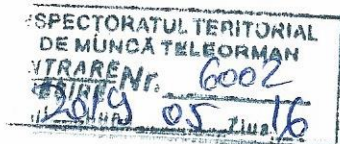 INSPECTORATUL TERITORIAL
DE MUNCĂ TELEORMAN
INTRARE Nr. 6002
IEŞIRE
2019 05 Ziua 16